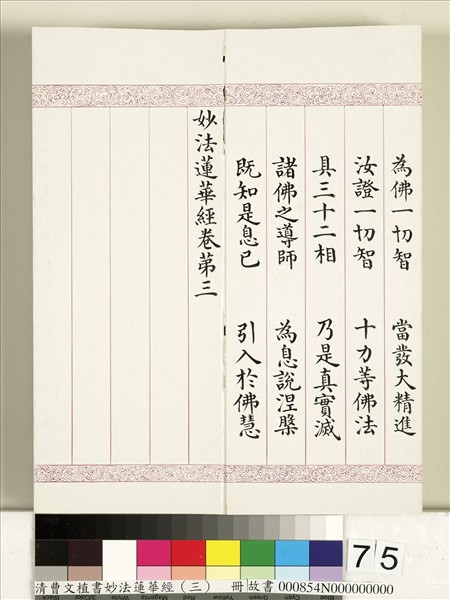 為佛一切智 當發大精進
汝證一切智 十力等佛法
具三十二相 乃是真實滅
諸佛之導師 為息說涅槃
既知是息已 引入於佛慧
妙法蓮華經卷第三
75
清曹文植書妙法蓮華經(三) 冊 故書 000854N000000000